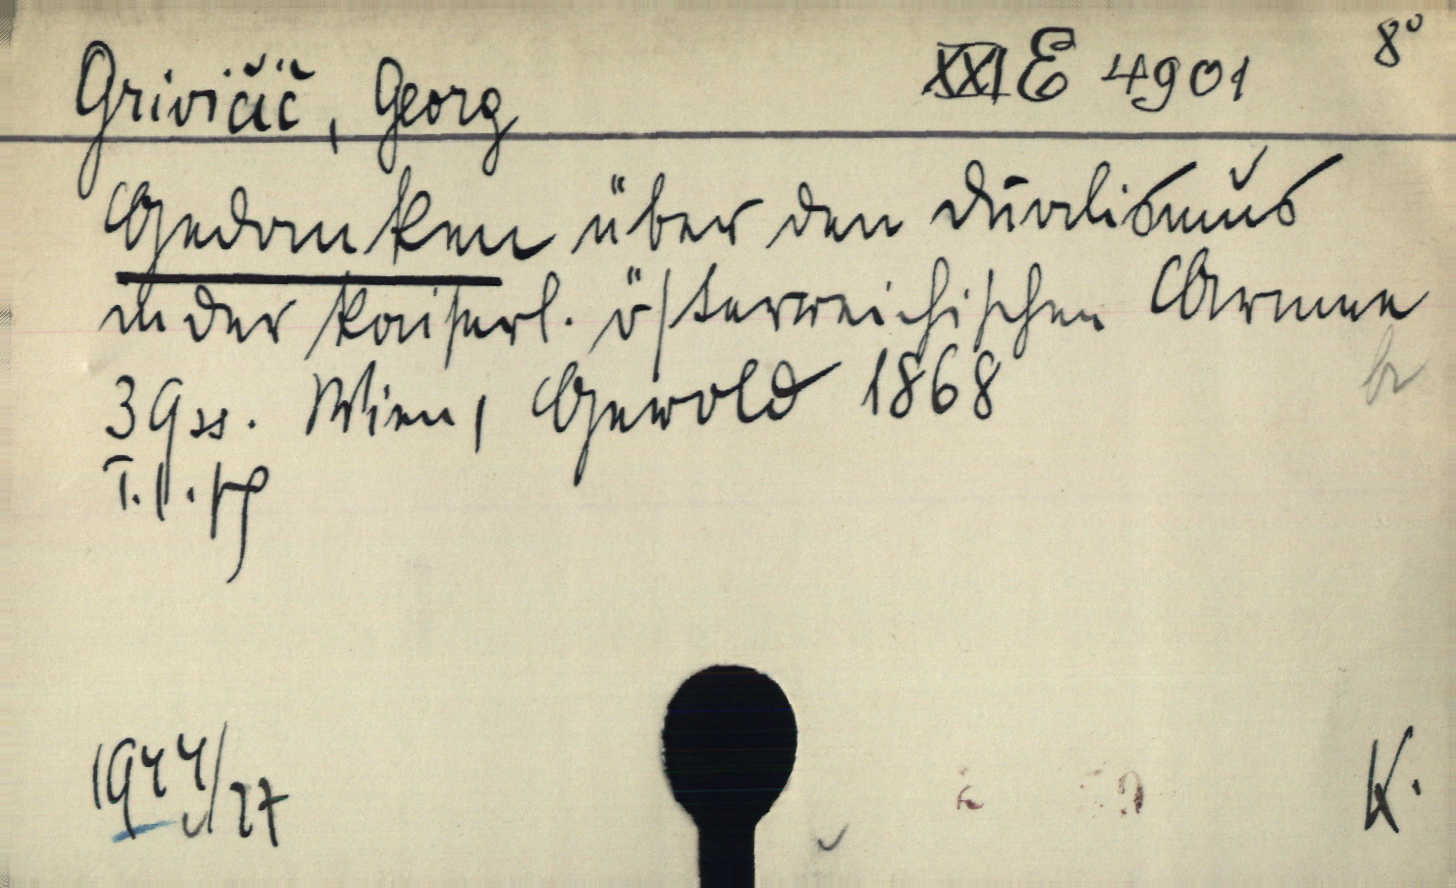 Grivičić, Georg XXI E 4901 8°
Gedanken über den Dualismus
in der kaiserl. österreichischen Armee
39 ss. Wien, Gerold 1868
br
1944/27
K.